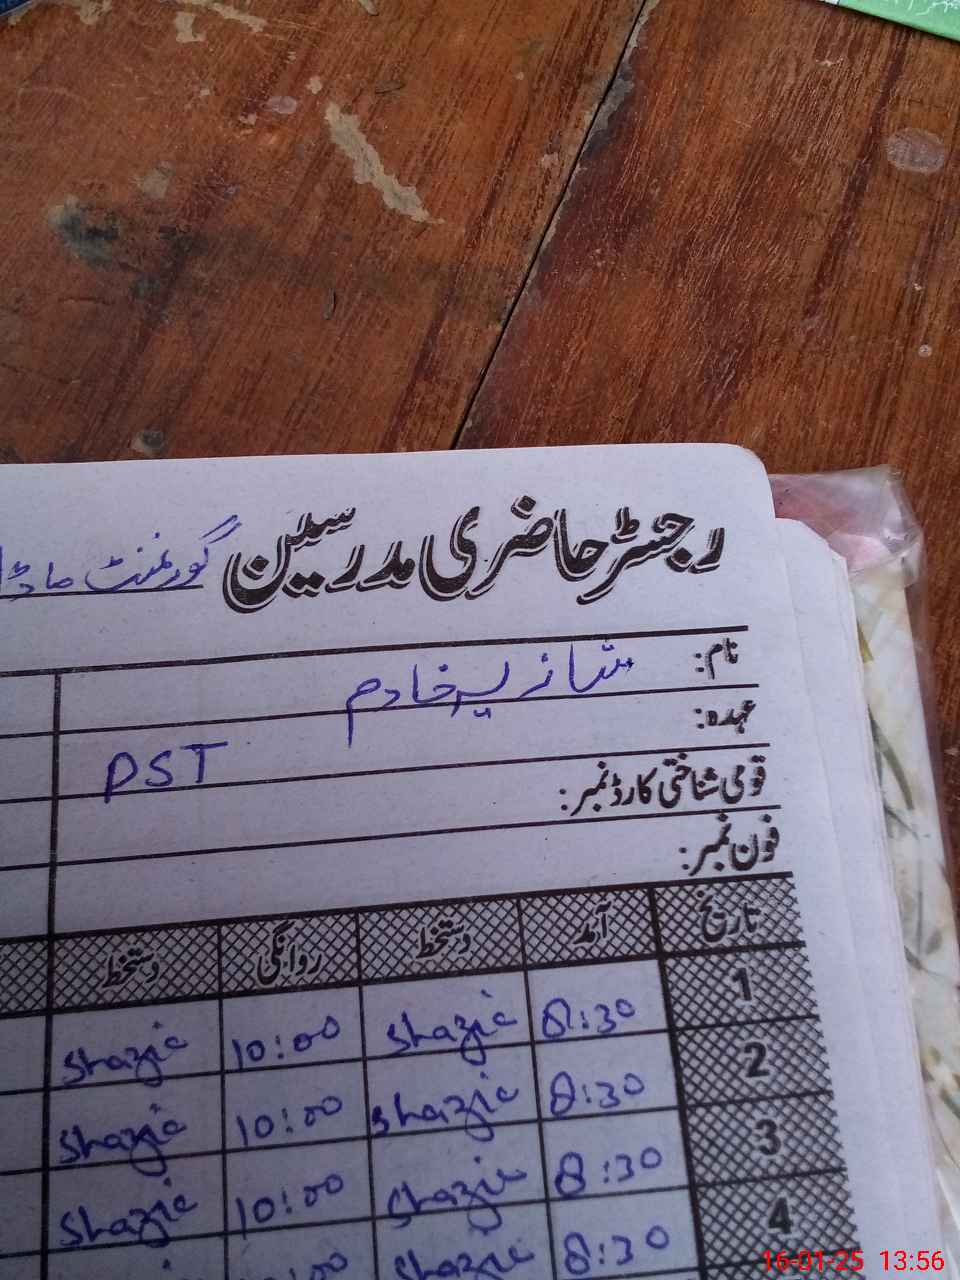 رجسٹر حاضری مدرسین گورنمنٹ ماڈل
نام: شازیہ خادم
عہدہ: PST
قومی شناختی کارڈ نمبر:
فون نمبر:
تاریخ آمد دستخط روانگی دستخط
1 8:30 Shazie 10:00 Shazie
2 8:30 Shazie 10:00 Shazie
3 8:30 Shazie 10:00 Shazie
4 8:30
16-01-25 13:56